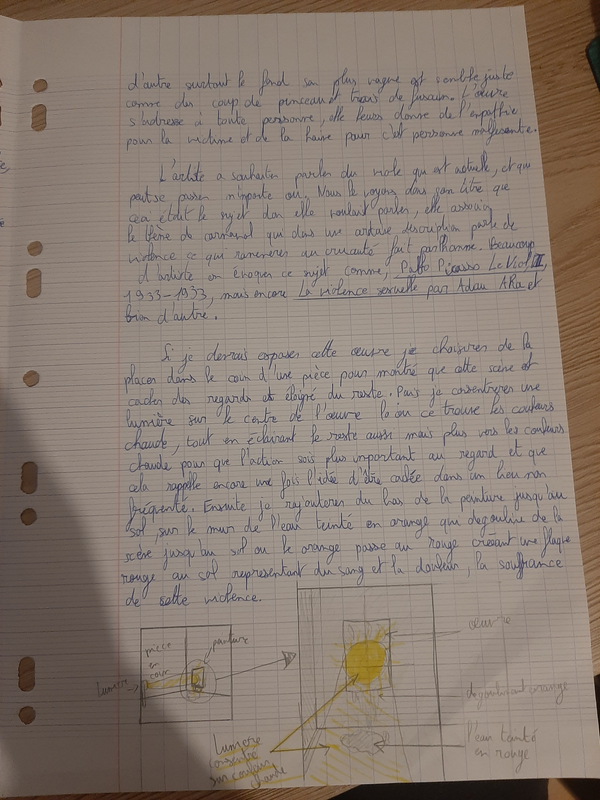 d'autre surtout le fond son plus vague est semble juste
comme des coup de pinceau et trais de fusain. L'œuvre
s'adresse à toute personne, elle leurs donne de l'empathie
pour la victime et de la haine pour c'est personne malfaisante.
L'artiste a souhaiter parler du viole qui est actuelle, et qui
peut se passer n'importe ou. Nous le voyons dans son titre que
ceci était le sujet don elle voulait parler, elle associe
le thème de carnaval qui dans une description parle de
violence ce qui rameneres au cruauté fait par l'homme. Beaucoup
d'artiste on évoquer ce sujet comme, Pablo Picasso Le Viol II,
1933-1933, mais encore La violence sexuelle par Adam et
bien d'autre.
Si je devrais exposer cette œuvre je choisires de la
placer dans le coin d'une pièce pour montré que cette scène est
cacher des regards et éloigné du reste. Puis je consentreres une
lumière sur le centre de l'œuvre la ou ce trouve les couleurs
chaude, tout en éclairant le reste aussi mais plus vers les couleurs
chaude pour que l'action sois plus important au regard et que
cela rappelle encore une fois l'idée d'être cachée dans un lieu non
fréquenté. Ensuite je rajouteres du bas de la peinture jusqu'au
sol, sur le mur de l'eau teinté en orange qui dégouline de la
scène jusqu'au sol ou le orange passe au rouge créant une flaque
rouge au sol representant du sang et la douleur, la souffrance
de cette violence.
œuvre
peinture
piece
en
lumière
dégoulinant orange
l'eau teinté
en rouge
lumière
consentré
sur couleur
chaude